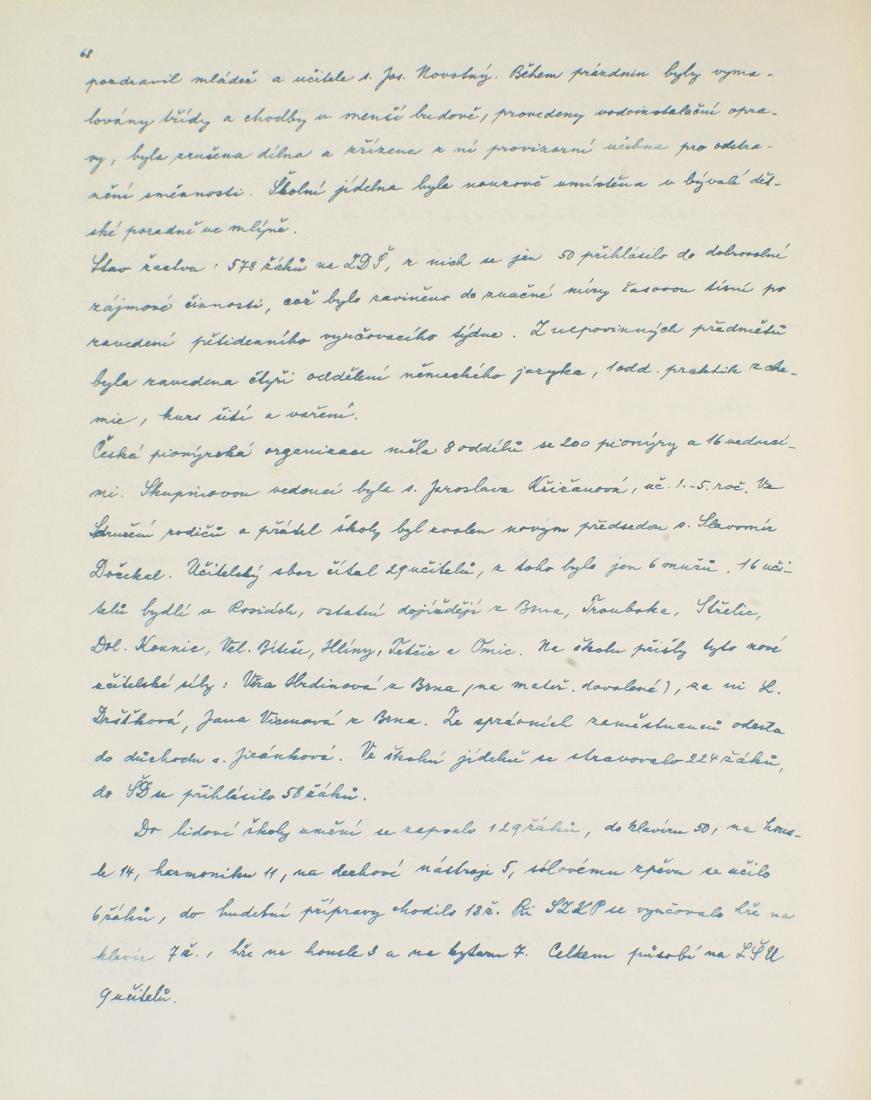 68
pozdravil mládež a učitele s. Jos. Novotný. Během prázdnin byly vyma-
lovány třídy a chodby v menší budově, provedeny vodoinstalační opra-
vy, byla zrušena dílna a zřízena z ní provizorní učebna pro odstra-
nění směnnosti. Školní jídelna byla nouzově umístěna v bývalé dět-
ské poradně ve mlýně.
Stav žactva: 578 žáků na ZDŠ, z nich se jen 50 přihlásilo do dobrovolné
zájmové činnosti, což bylo zaviněno do značné míry časovou tísní po
zavedení pětidenního vyučovacího týdne. Z nepovinných předmětů
byla zavedena čtyři oddělení německého jazyka, 1 odd. praktik z che-
mie, kurs šití a vaření.
Česká pionýrská organizace měla 8 oddílů se 200 pionýry a 16 vedoucí-
mi. Skupinovou vedoucí byla s. Jaroslava Křižanová, uč. 1.-5. roč. Ve
Sdružení rodičů a přátel školy byl zvolen novým předsedou s. Slavomír
Dočekal. Učitelský sbor čítal 29 učitelů, z toho bylo jen 6 mužů. 16 uči-
telů bydlí v Rosicích, ostatní dojíždějí z Brna, Troubska, Střelic,
Dol. Kounic, Vel. Bíteše, Hlíny, Tetčic a Omic. Na školu přišly tyto nové
učitelské síly: Věra Hrdinová z Brna (na mateř. dovolené), za ni L.
Drštková, Jana Vicenová z Brna. Ze správních zaměstnanců odešla
do důchodu s. Jiránková. Ve školní jídelně se stravovalo 224 žáků,
do ŠD se přihlásilo 58 žáků.
Do lidové školy umění se zapsalo 129 žáků, do klavíru 50, na hous-
le 14, harmoniku 11, na dechové nástroje 5, sólovému zpěvu se učilo
6 žáků, do hudební přípravy chodilo 13 ž. Při SZKP se vyučovalo hře na
klavír 7 ž., hře na housle 3 a na kytaru 7. Celkem působí na LŠU
9 učitelů.